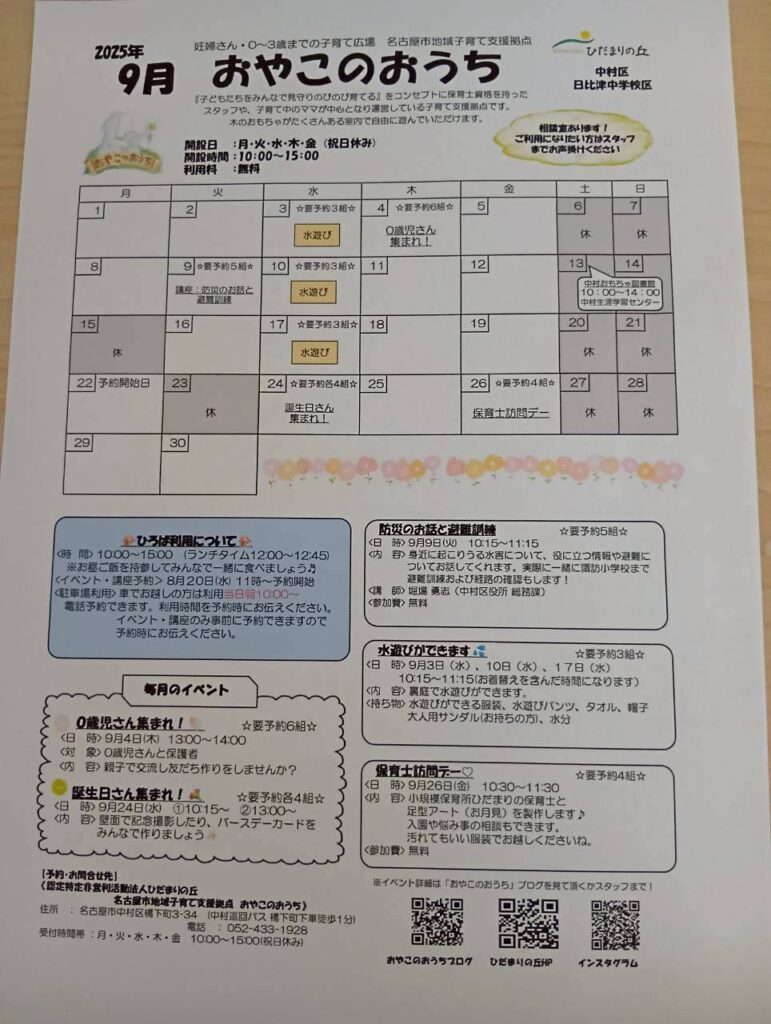 妊婦さん・0～3歳までの子育て広場　名古屋市地域子育て支援拠点
2025年
9月　おやこのおうち
ひだまりの丘
中村区
日比津中学校区
『子どもたちをみんなで見守りのびのび育てる』をコンセプトに保育士資格を持った
スタッフや、子育て中のママが中心となり運営している子育て支援拠点です。
木のおもちゃがたくさんある室内で自由に遊んでいただけます。
おやこのおうち
開設日　：月・火・水・木・金（祝日休み）
開設時間：10:00～15:00
利用料　：無料
相談室あります！
ご利用になりたい方はスタッフ
までお声掛けください
月 火 水 木 金 土 日
1 2 3 ☆要予約3組☆ 4 ☆要予約6組☆ 5 6 7
水遊び 0歳児さん 休 休
集まれ！
8 9 ☆要予約5組☆ 10 ☆要予約3組☆ 11 12 13 14
講座：防災のお話と 水遊び 中村おもちゃ図書館
避難訓練 10：00～14：00
中村生涯学習センター
15 16 17 ☆要予約3組☆ 18 19 20 21
休 水遊び 休 休
22 予約開始日 23 24 ☆要予約各4組☆ 25 26 ☆要予約4組☆ 27 28
休 誕生日さん 保育士訪問デー 休 休
集まれ！
29 30
ひろば利用について
<時　間> 10:00～15:00　(ランチタイム12:00～12:45)
※お昼ご飯を持参してみんなで一緒に食べましょう♪
<イベント・講座予約> 8月20日(水) 11時～予約開始
<駐車場利用> 車でお越しの方は利用当日朝10:00～
電話予約できます。利用時間を予約時にお伝えください。
イベント・講座のみ事前に予約できますので
予約時にお伝えください。
毎月のイベント
0歳児さん集まれ！　☆要予約6組☆
<日　時> 9月4日(木)　13:00～14:00
<対　象> 0歳児さんと保護者
<内　容> 親子で交流し友だち作りをしませんか？
誕生日さん集まれ！　☆要予約各4組☆
<日　時> 9月24日(水)　①10:15～　②13:00～
<内　容> 壁面で記念撮影したり、バースデーカードを
みんなで作りましょう
【予約・お問合せ先】
《認定特定非営利活動法人ひだまりの丘
名古屋市地域子育て支援拠点　おやこのおうち》
住所　：名古屋市中村区橋下町3-34　(中村巡回バス 橋下町下車徒歩1分)
電話　：052-433-1928
受付時間帯：月・火・水・木・金　10:00～15:00(祝日休み)
防災のお話と避難訓練　☆要予約5組☆
<日　時> 9月9日(火)　10:15～11:15
<内　容> 身近に起こりうる水害について、役に立つ情報や避難に
ついてお話してくれます。実際に一緒に諏訪小学校まで
避難訓練および経路の確認もします！
<講　師> 堀場 勇志（中村区役所 総務課）
<参加費> 無料
水遊びができます　☆要予約3組☆
<日　時> 9月3日（水）、10日（水）、17日（水）
10:15～11:15(お着替えを含んだ時間になります)
<内　容> 裏庭で水遊びができます。
<持ち物> 水遊びができる服装、水遊びパンツ、タオル、帽子
大人用サンダル(お持ちの方)、水分
保育士訪問デー♡　☆要予約4組☆
<日　時> 9月26日(金)　10:30～11:30
<内　容> 小規模保育所ひだまりの保育士と
足型アート（お月見）を製作します♪
入園や悩み事の相談もできます。
汚れてもいい服装でお越しくださいね。
<参加費> 無料
※イベント詳細は「おやこのおうち」ブログを見て頂くかスタッフまで！
おやこのおうちブログ　ひだまりの丘HP　インスタグラム